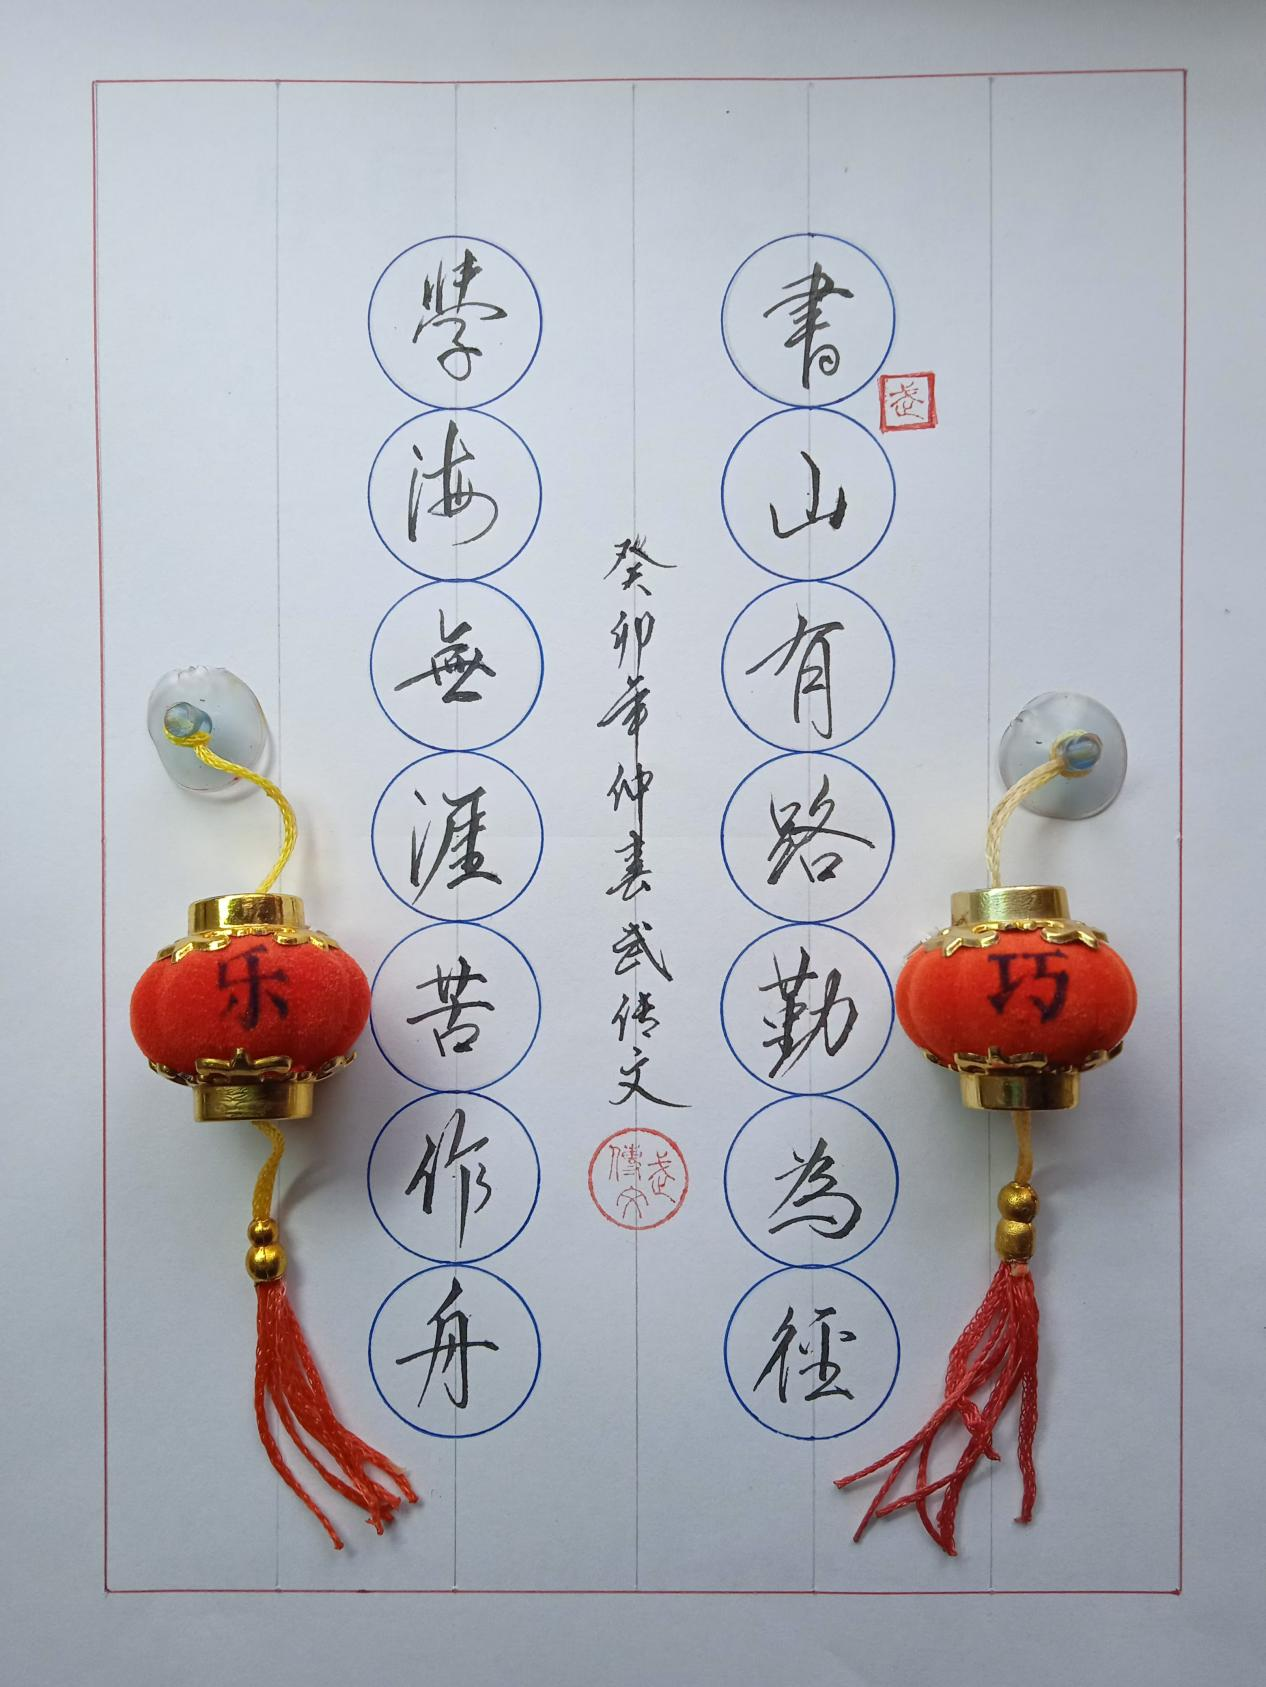 書山有路勤為徑
武
癸卯年仲春武传文
武傳文
學海無涯苦作舟
巧
乐